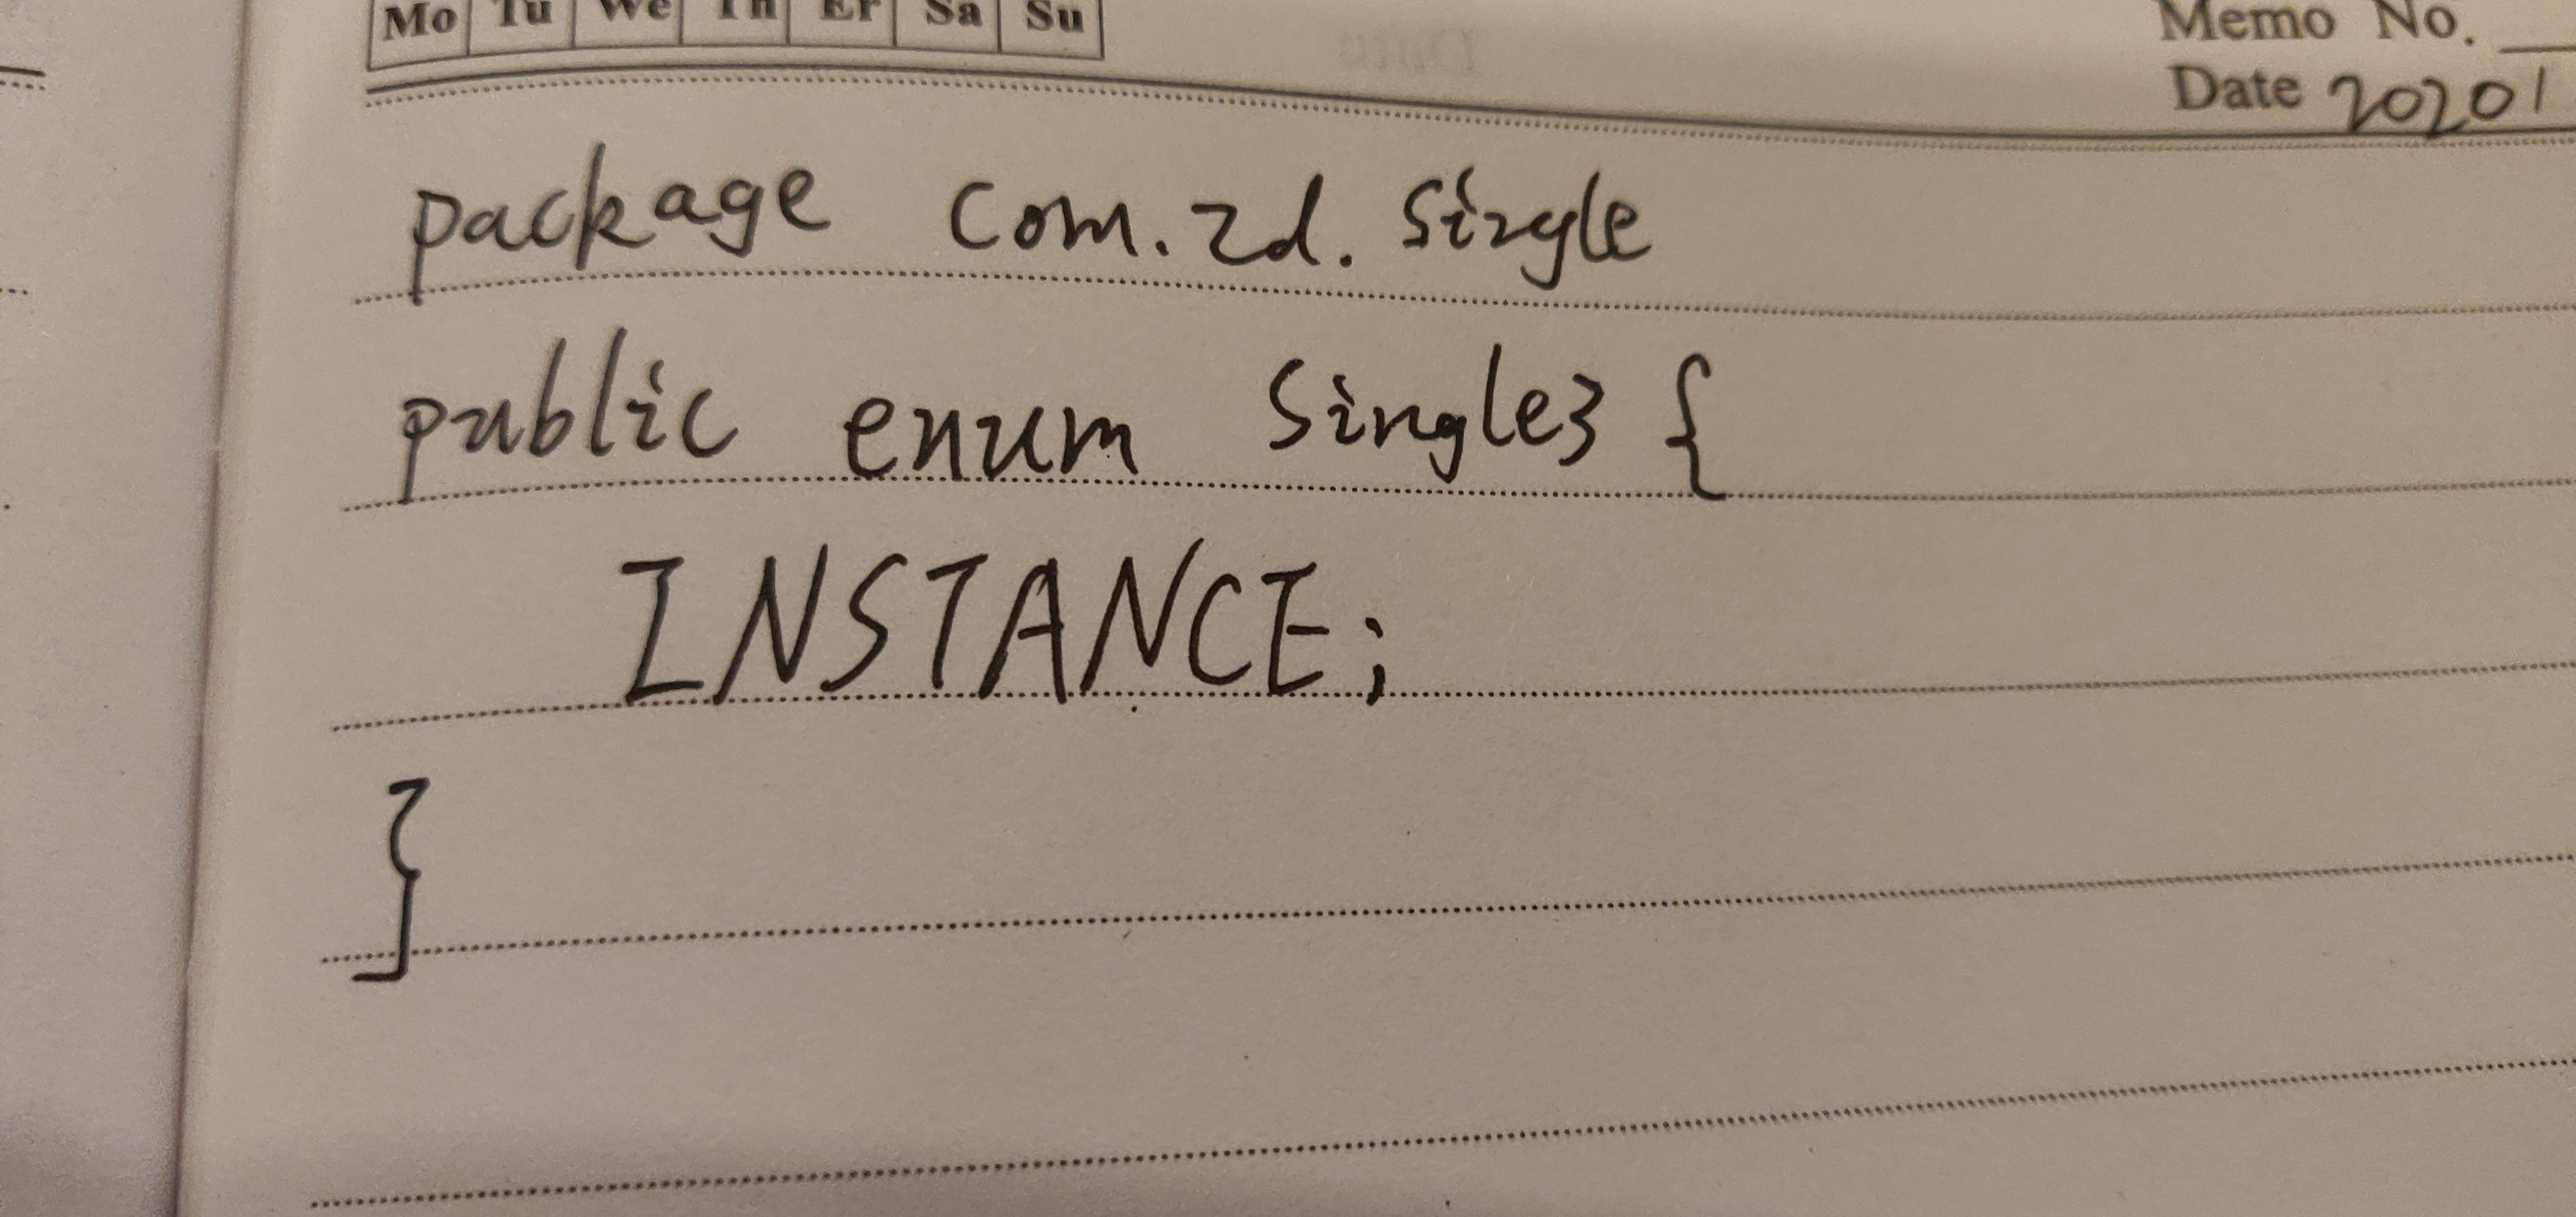 Mo Tu We Th Er Sa Su
Memo No.
Date 20201
package com.zd.single
public enum Single3 {
INSTANCE;
}